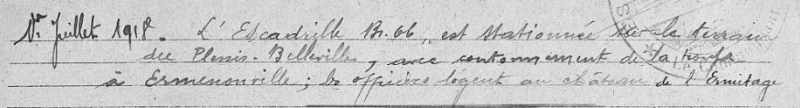 1er Juillet 1918. L'Escadrille Br. 66, est stationnée sur le terrain
du Plessis-Belleville, avec cantonnement de la troupe
à Ermenonville; les officiers logent au château de l'Ermitage